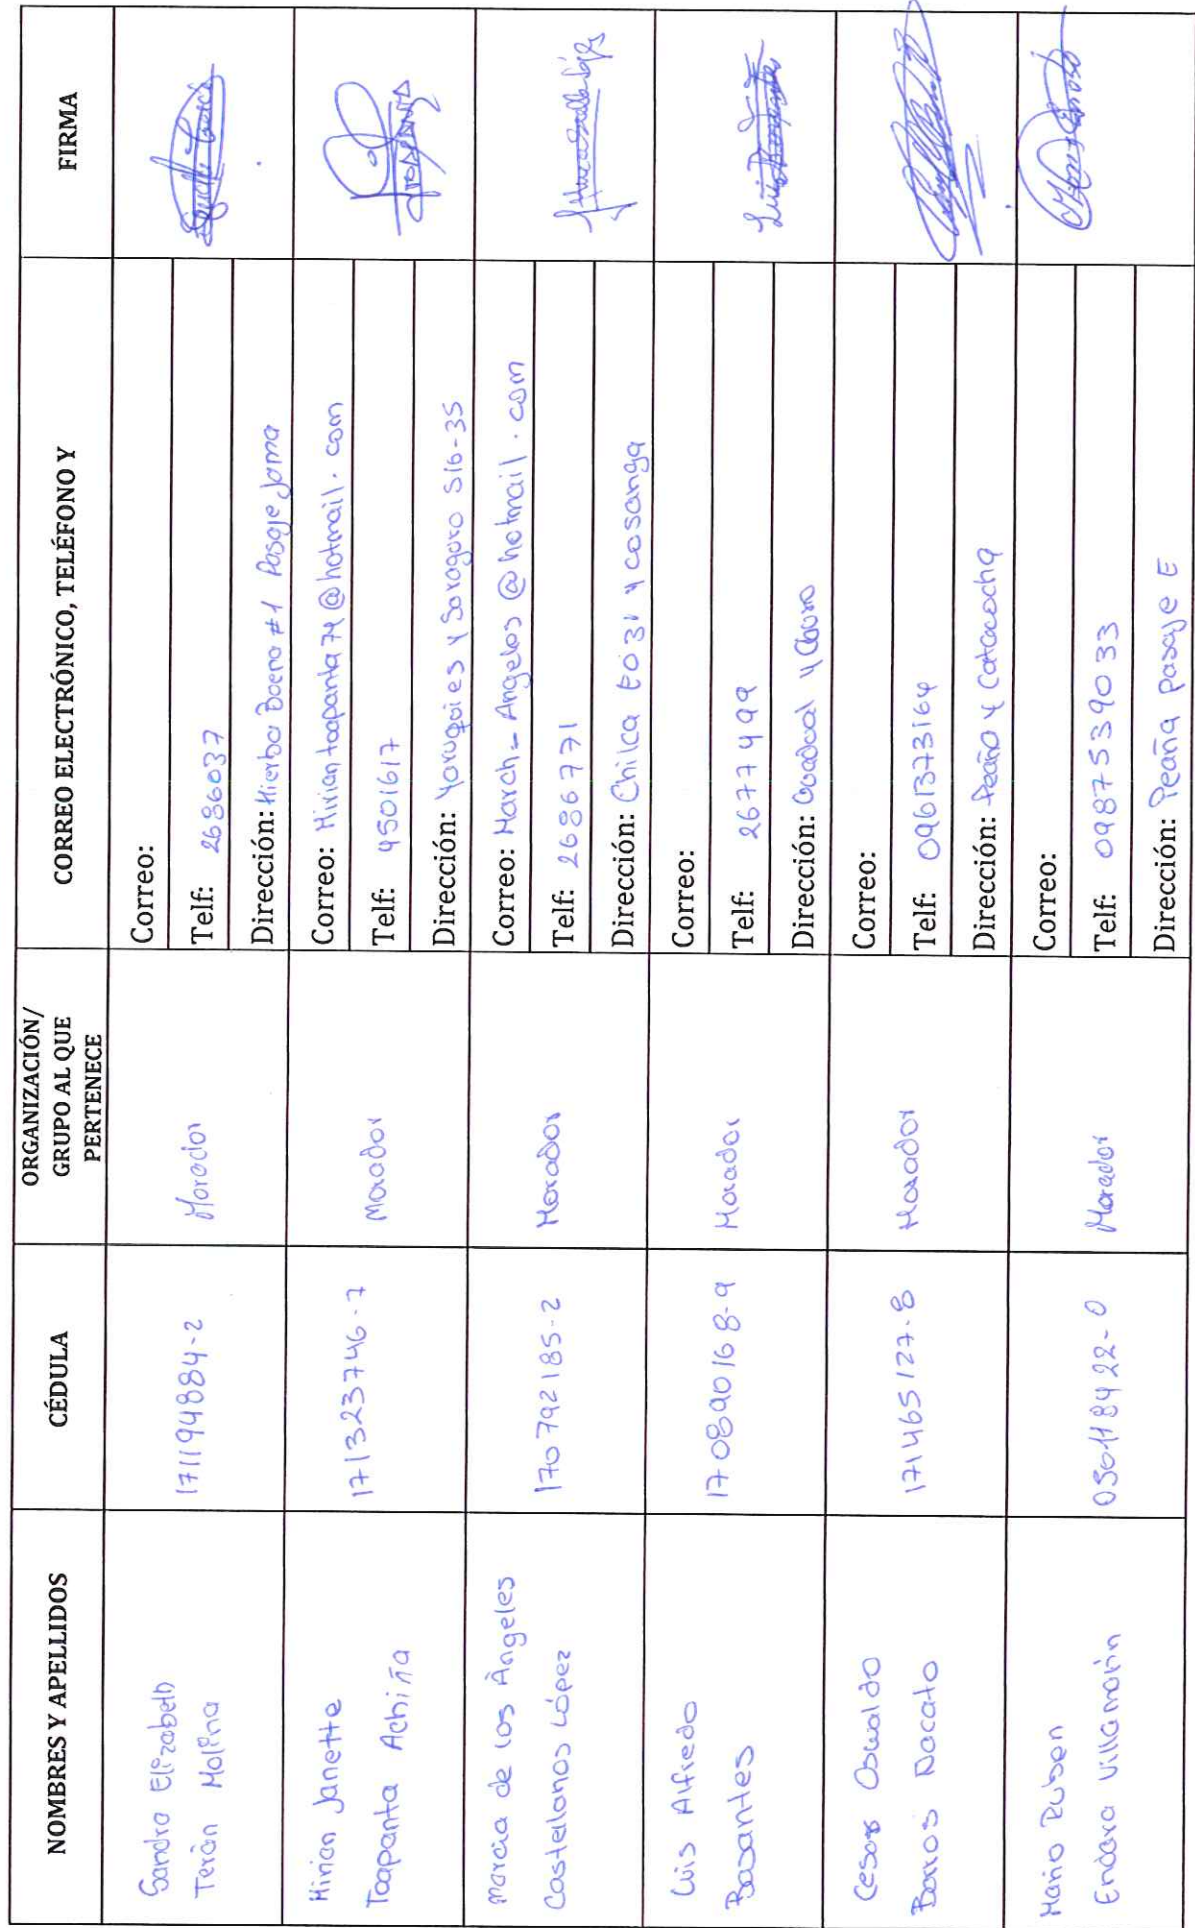 NOMBRES Y APELLIDOS
CÉDULA
ORGANIZACIÓN/
GRUPO AL QUE
PERTENECE
CORREO ELECTRÓNICO, TELÉFONO Y
FIRMA
Sandra Elizabeth
Terán Molina
171194884-2
Morador
Correo:
Telf: 2686037
Dirección: Hierba Buena #1 Pasaje Jama
Mirian Janette
Toapanta Achiña
171323746-7
Morador
Correo: Miriantoapanta74@hotmail.com
Telf: 4501617
Dirección: Yaruquies y Saraguro S16-35
Marcia de los Ángeles
Castellanos López
170792185-2
Morador
Correo: March-Angelos@hotmail.com
Telf: 2686771
Dirección: Chilca E031 y cosanga
Luis Alfredo
Basantes
170890168-9
Morador
Correo:
Telf: 2677499
Dirección: Guadual y
Cesar Oswaldo
Barros Nacato
171465127-8
Morador
Correo:
Telf: 0961373164
Dirección: y Catacocha
Mario Ruben
Endara Villamarín
050118422-0
Morador
Correo:
Telf: 0987539033
Dirección: Peaña pasaje E